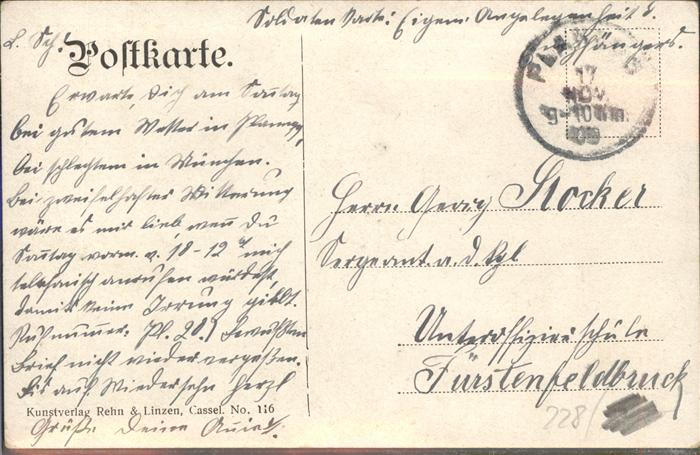 Soldaten Karte: Eigene Angelegenheit d. Empfängers.
L. Sch.!
Postkarte.
Erwarte, Dich am Sonntag
bei gutem Wetter in Planegg,
bei schlechtem in München.
Bei zweifelhafter Witterung
wäre es mir lieb, wenn du
Sonntag vorm. v. 10-12 mich
telephonisch anrufen würdest,
damit keine Irrung gibt.
Rufnummer. Pl. 201
Brief nicht wieder vergessen.
Bis auf Wiedersehn herzl
Grüße Deine
Kunstverlag Rehn & Linzen, Cassel. No. 116
17
NOV
9-10
Herrn Georg Stocker
Sergeant a. d. Kgl
Unteroffizierschule
Fürstenfeldbruck
228/